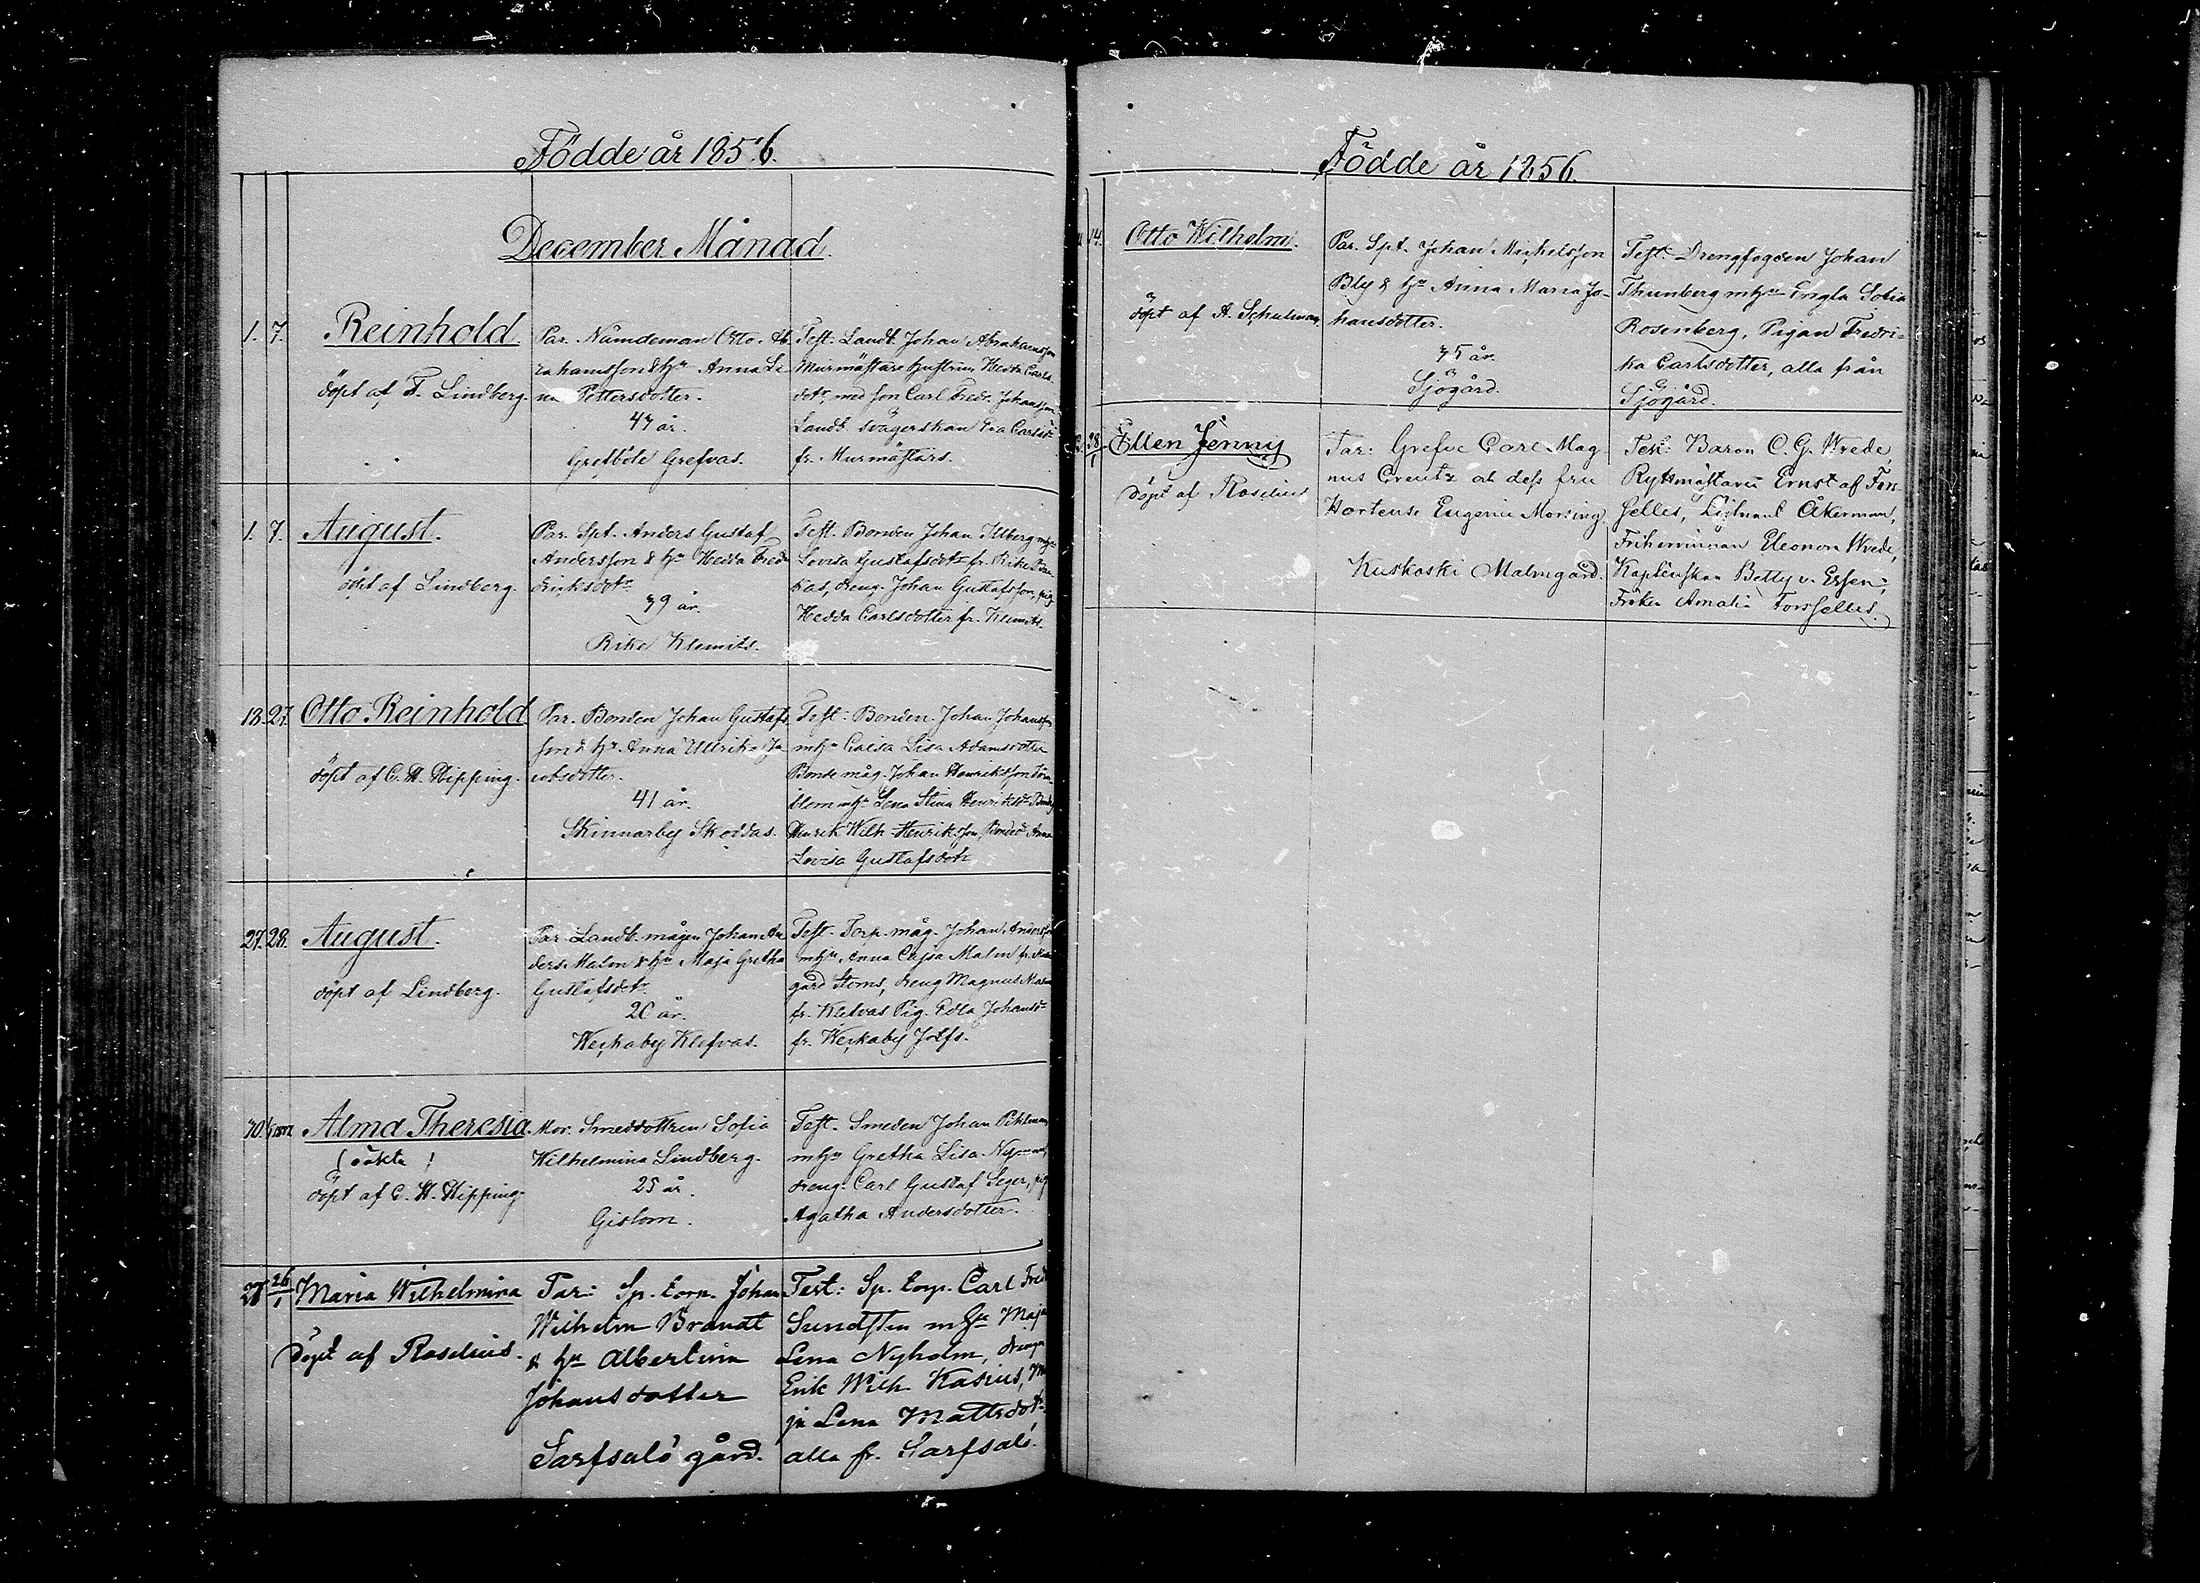 Födde år 1856.
December Månad.
1. 7. Reinhold.
döpt af F. Lindberg.
Par. Nämdeman Otto Ab
rahamsson & hu Anna Le
na Pettersdotter.
47 år.
Gretbole Grefvas.
Test: Landb. Johan Abrahamsson
Murmästare hustrun Hedda Carls
dotr, med son Carl Fredr. Johansson
Landb. svägerskan Eva Carlsdr
fr. Murmästars.
1. 7. August.
döpt af Lindberg.
Par. Spt. Anders Gustaf
Andersson & hu Hedda Fred
dricksdotr
39 år.
Rike Klemits.
Test. Bonden Johan Illberg mhu
Lovisa Gustafsdotr fr. Rike
kas, dreng. Johan Gustafsson, pig
Hedda Carlsdotter fr. Klemits.
18. 27. Otto Reinhold
döpt af C. H. Hipping.
Par. Bonden Johan Gustafs
son & hu Anna Ullrika Ja
cobsdotter.
41 år.
Skinnarby Skoddas.
Test: Bonden Johan Johansson
mhu Caisa Lisa Adamsdotter
Bonde måg. Johan Henriksson
mhu Lena Stina Henriksdr
Henrik Wilh. Henriksson, Anna
Lovisa Gustafsdotr
27. 28. August.
döpt af Lindberg.
Par. Landb. mågen Johan An
ders. Malm & hu Maja Gretha
Gustafsdotr
20 år.
Weckaby Klefvas.
Test. Torp. måg. Johan Andersson
mhu Anna Cajsa Malm fr.
gård Stoms, dreng Magnus
fr. Klefvas Pig. Edla Johansdr
fr. Weckaby Jolfs.
30. Alma Theresia.
(oäkta)
döpt af C. H. Hipping.
Mor. Smeddottren Sofia
Wilhelmina Lindberg.
25 år.
Gislom.
Test. Smeden Johan Pihlman
mhu Gretha Lisa Nyman
dreng. Carl Gustaf Seger, pig
Agatha Andersdotter.
28 26/1 Maria Wilhelmina
Döpt af Roselius.
Par: Sp. torp. Johan
Wilhelm Brandt
& hu Albertina
Johansdotter
Sarfsalö gård.
Test: Sp. torp. Carl Fred
Sundsten mhu Maja
Lena Nyholm, dreng
Erik Wilh. Kasius, Ma
ja Lena Mattsdotr
alla fr. Sarfsalö.
Födde år 1856.
14. Otto Wilhelm.
döpt af A. Schulman
Par. Spt. Johan Michelsson
Bly & hu Anna Maria Jo-
hansdotter.
35 år.
Sjögård.
Test: Drengfogden Johan
Thunberg mhu Engla Sofia
Rosenberg, Pigan Fredri-
ka Carlsdotter, alla från
Sjögård.
28/1 Ellen Jenny
Döpt af Roselius
Par: Grefve Carl Mag
nus Creutz och dess fru
Hortense Eugenie Morsing.
Kuskoski Malmgård.
Test: Baron C. G. Wrede,
Ryttmästare Ernst af For
selles, Löjtnant Åkerman,
Friherrinnan Eleonora Wrede,
Kaptenskan Betty v. Essen,
Fröken Amalia Forselles.